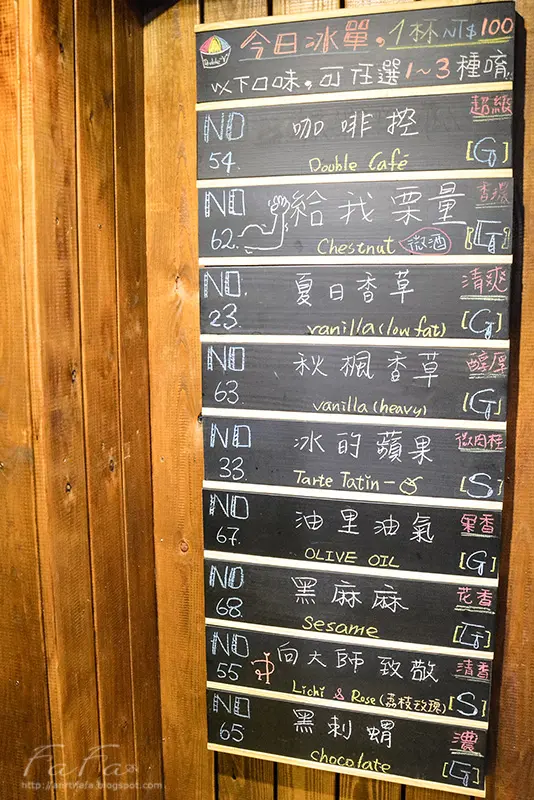 今日冰單,1杯NT$100
以下口味,可任選1~3種唷
NO 54. 咖啡控 超級
Double Café [G]
NO 62. 給我栗量 香濃
Chestnut 微酒 [G]
NO. 23. 夏日香草 清爽
vanilla (low fat) [G]
NO 63. 秋楓香草 醇厚
vanilla (heavy) [G]
NO 33. 冰的蘋果 微肉桂
Tarte Tatin [S]
NO 67. 油里油氣 果香
OLIVE OIL [G]
NO 68. 黑麻麻 花香
Sesame [G]
NO 55 向大師致敬 清香
Lichi & Rose (荔枝玫瑰) [S]
NO 65 黑刺蝟 濃
chocolate [G]
FaFa
http://anrtifafa.blogspot.com